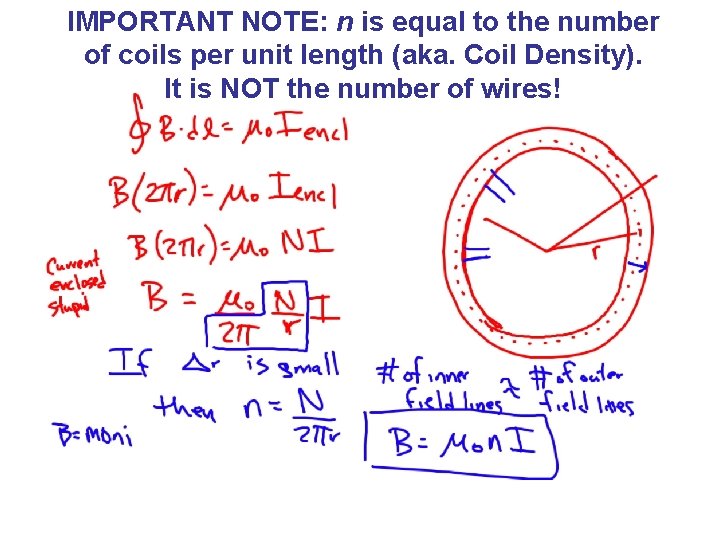 IMPORTANT NOTE: n is equal to the number
of coils per unit length (aka. Coil Density).
It is NOT the number of wires!
∮ B·dl = μ₀ I encl
B(2πr) = μ₀ I encl
B(2πr) = μ₀ NI
Current
enclosed
stupid
B = μ₀/2π N/r I
r
If Δr is small
then n = N/2πr
# of inner
field lines
≈
# of outer
field lines
B=moni
B = μ₀nI